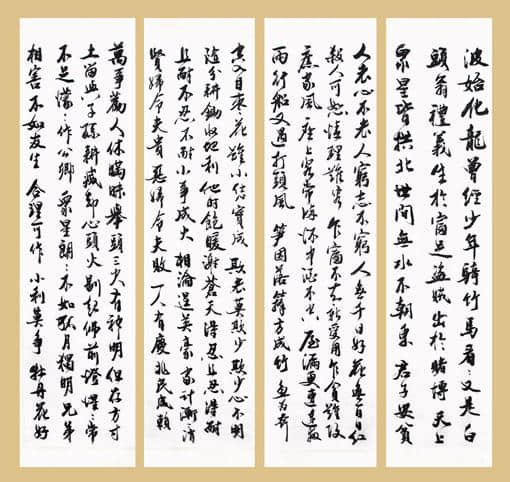 波始化龍曾經少年騎竹馬看〻又是白
頭翁禮義生於富足盜賊出於賭博天上
眾星皆拱北世間無水不朝東君子安貧
人老心不老人窮志不窮人無千日好花無百日紅
殺人可恕情理難容乍富不知新受用乍貧難改
舊家風座上客常滿杯中酒不空屋漏更遭連夜
雨行船又遇打頭風筍因落籜方成竹魚為奔
空入目棗花雖小結實成欺老莫欺少欺少心不明
隨分耕鋤收地利他時飽暖謝蒼天得忍且忍得耐
且耐不忍不耐小事成大相論逞英豪家計漸〻消
賢婦令夫貴惡婦令夫敗一人有慶兆民咸賴
萬事勸人休瞞昧舉頭三尺有神明但存方寸
土留與子孫耕滅卻心頭火剔起佛前燈惺〻常
不足懵〻作公卿眾星朗〻不如孤月獨明兄弟
相害不如友生合理可作小利莫爭牡丹花好